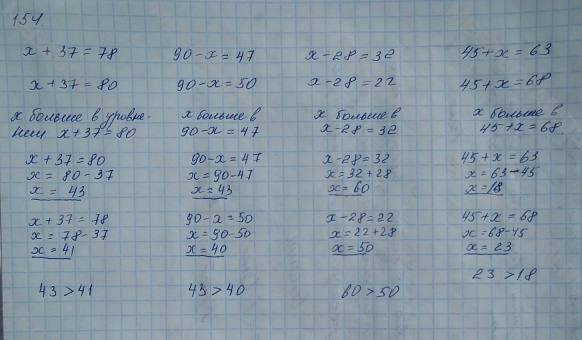 154.
x + 37 = 78
x + 37 = 80
x больше в уравне-
нии x + 37 = 80
x + 37 = 80
x = 80 - 37
x = 43
x + 37 = 78
x = 78 - 37
x = 41
43 > 41
90 - x = 47
90 - x = 50
x больше в
90 - x = 47
90 - x = 47
x = 90 - 47
x = 43
90 - x = 50
x = 90 - 50
x = 40
43 > 40
x - 28 = 32
x - 28 = 22
x больше в
x - 28 = 32
x - 28 = 32
x = 32 + 28
x = 60
x - 28 = 22
x = 22 + 28
x = 50
60 > 50
45 + x = 63
45 + x = 68
x больше в
45 + x = 68
45 + x = 63
x = 63 - 45
x = 18
45 + x = 68
x = 68 - 45
x = 23
23 > 18